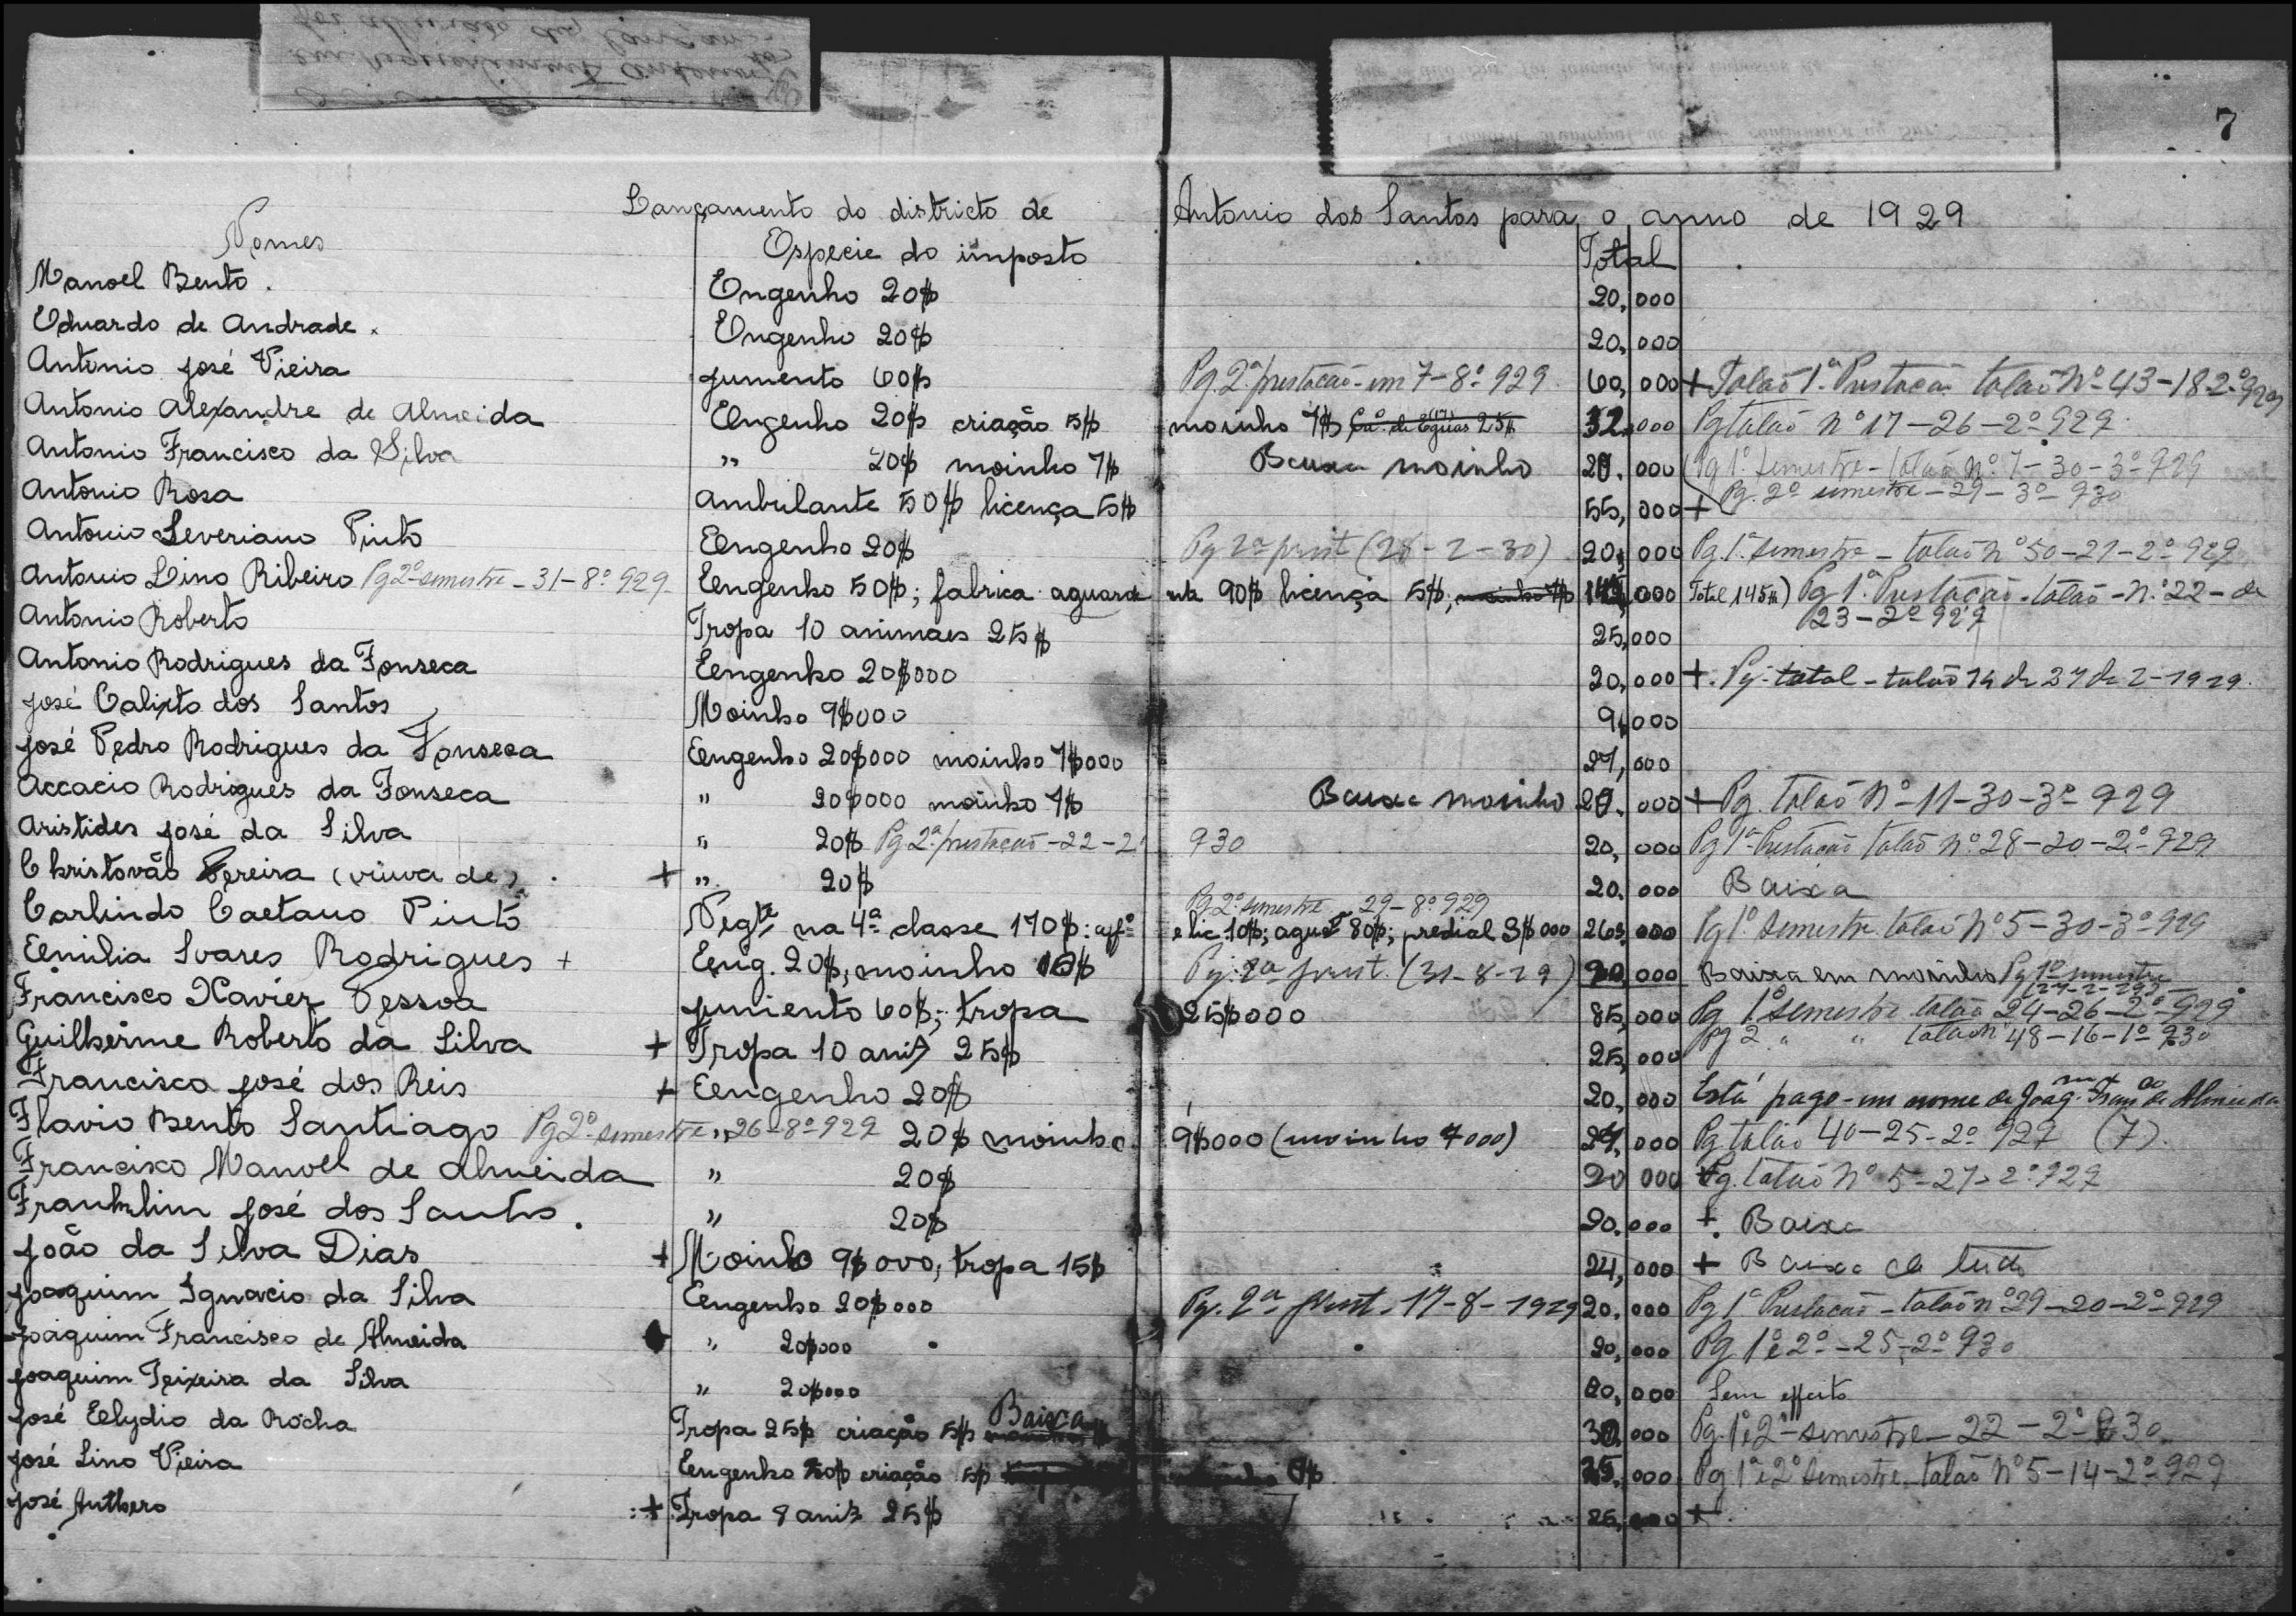 7
Lançamento do districto de Antonio dos Santos para o anno de 1929
Nomes Especie do imposto Total
Manoel Bento. Engenho 20$ 20,000
Eduardo de Andrade. Engenho 20$ 20,000
Antonio José Vieira jumento 60$ Pg. 2ª prestação em 7-8º 929 60,000 + Talão 1ª Prestação talão Nº 43-18-2º 929
Antonio Alexandre de Almeida Engenho 20$ criação 5$ moinho 7$ de Eguas 25$ 32,000 Pg talão Nº 17-26-2º 929
Antonio Francisco da Silva " 20$ moinho 7$ Baixa moinho 20.000 Pg 1º Semestre - talão Nº 7-30-3º 929
Pg. 2º semestre - 29-3º 930
Antonio Rosa Ambulante 50$ licença 5$ 55,000 +
Antonio Severiano Pinto Engenho 20$ Pg 2ª prest (28-2-30) 20,000 Pg 1º Semestre - talão nº 50-21-2º 929
Antonio Lino Ribeiro Pg 2º semestre - 31-8º 929 Engenho 50$; fabrica aguardente 90$ licença 5$; moinho 7$ 145,000 Total 145$) Pg 1ª Prestação - talão - N.º 22 - de
23-2º 929
Antonio Roberto Tropa 10 animaes 25$ 25,000
Antonio Rodrigues da Fonseca Engenho 20$000 20,000 +. Pg. total - talão 14 de 27 de 2-1929.
José Calixto dos Santos Moinho 9$000 9,000
José Pedro Rodrigues da Fonseca Engenho 20$000 moinho 7$000 27,000
Accacio Rodrigues da Fonseca " 20$000 moinho 7$ Baixa moinho 20.000 + Pg. talão Nº 11-30-3º 929
Aristides José da Silva " 20$ Pg 2ª prestação - 22-2º 930 20,000 Pg 1ª Prestação talão nº 28-20-2º 929
Christovão Pereira (viuva de) + " 20$ 20.000 Baixa
Pg 2º semestre 29-8º 929
Carlindo Caetano Pinto Negte na 4ª classe 170$: aff º e lic 10$; aguate 80$; predial 3$000 263.000 Pg 1º Semestre talão Nº 5-30-3º 929
Emilia Soares Rodrigues + Eng. 20$; moinho Pg. 2ª prest. (31-8-29) 20,000 Baixa em moinho Pg 1º semestre
Francisco Xavier Pessoa jumento 60$; tropa 25$000 85,000 Pg 1º Semestre talão 24-26-2º 929
Pg 2 " " talão nº 48-16-1º 930
Guilherme Roberto da Silva + Tropa 10 anis 25$ 25,000
Francisca José dos Reis + Engenho 20$ 20,000 Está pago em nome de Joaqm Franco de Almeida
Flavio Bento Santiago Pg 2º semestre 26-8º 929 " 20$ moinho 9$000 (moinho 7000) 27,000 Pg talão 40-25-2º 929 (7).
Francisco Manoel de Almeida " 20$ 20 000 Pg. talão Nº 5-27-2º 929
Franklim José dos Santos. " 20$ 20.000 + Baixa
João da Silva Dias + Moinho 9$000, tropa 15$ 24,000 + Baixa de tudo
Joaquim Ignacio da Silva Engenho 20$000 Pg. 2ª prest. 17-8-1929 20.000 Pg 1ª Prestação - talão nº 29-20-2º 929
Joaquim Francisco de Almeida " 20$000 20,000 Pg 1º e 2º - 25-2º 930
Joaquim Teixeira da Silva " 20$000 20,000 Sem effeito
José Elydio da Rocha Tropa 25$ criação 5$ Baixa 30,000 Pg. 1º e 2º semestre - 22-2º 930
José Lino Vieira Engenho criação 5$ 000 Pg 1º e 2º Semestre, talão Nº 5-14-2º 929
José Anthero + Tropa 8 anis 25$ 25,000 +